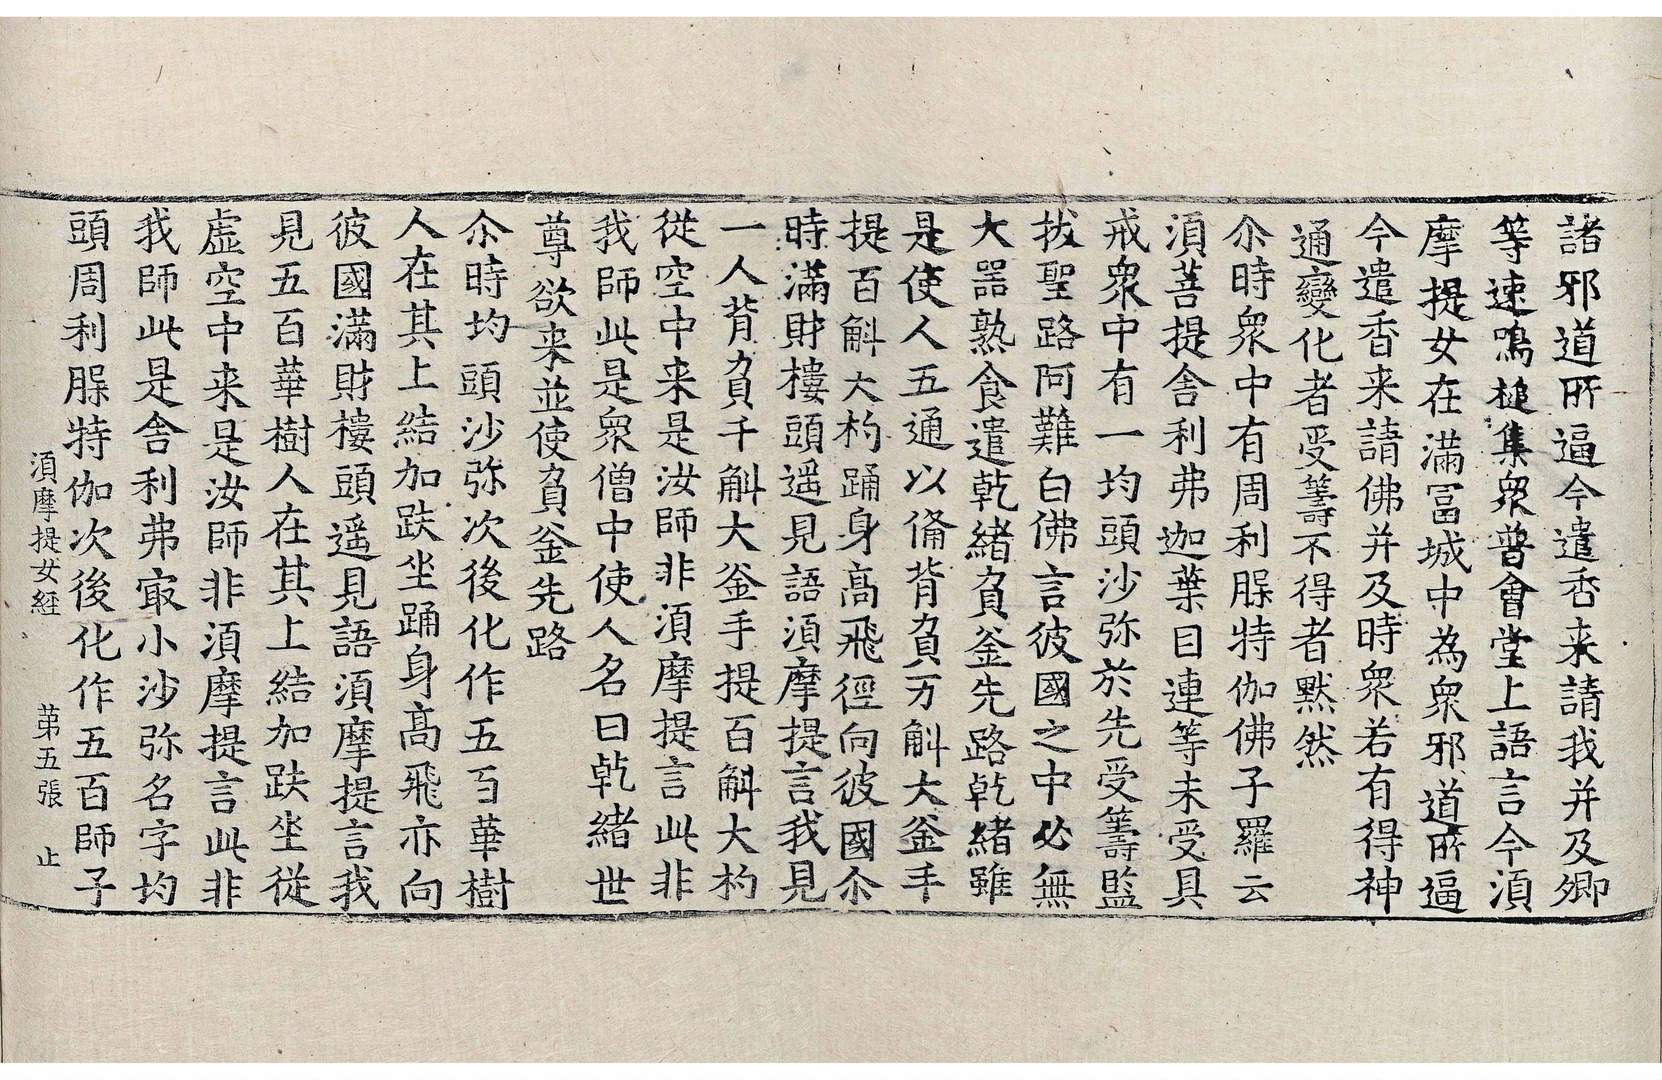 諸邪道所逼今遣香来請我并及卿
等速鳴槌集衆普會堂上語言今湏
摩提女在滿冨城中為衆邪道所逼
今遣香来請佛并及時衆若有得神
通變化者受籌不得者默然
尒時衆中有周利脲特伽佛子羅云
湏菩提舍利弗迦葉目連等未受具
戒衆中有一均頭沙弥於先受籌監
拔聖路阿難白佛言彼國之中必無
大器熟食遣乹緒負釜先路乹緒雖
是使人五通以俻背負万斛大釜手
提百斛大杓踊身髙飛徑向彼國尒
時滿財樓頭遥見語湏摩提言我見
一人背負千斛大釜手提百斛大杓
從空中来是汝師非湏摩提言此非
我師此是衆僧中使人名曰乹緒世
尊欲来並使負釜先路
尒時均頭沙弥次後化作五百華樹
人在其上結加趺坐踊身髙飛亦向
彼國滿財樓頭遥見語湏摩提言我
見五百華樹人在其上結加趺坐從
虛空中来是汝師非湏摩提言此非
我師此是舍利弗㝡小沙弥名字均
頭周利脲特伽次後化作五百師子
湏摩提女経 苐五張 止